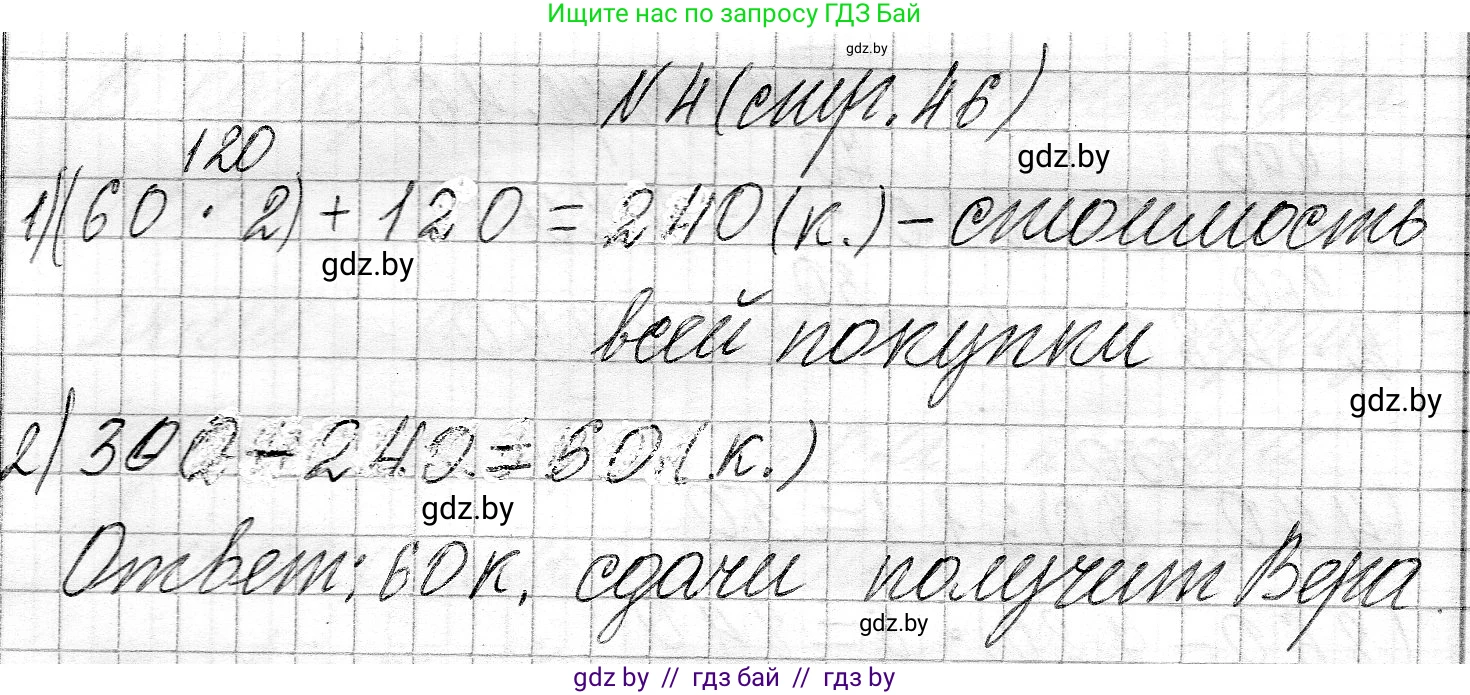 Ищите нас по запросу ГДЗ Бай
gdz.by
№4(стр.46)
gdz.by
120
1)(60·2)+120=240(к.)-стоимость
gdz.by
всей покупки
gdz.by
2)300-240=60(к.)
gdz.by
Ответ: 60к. сдачи получит Вера.
gdz.by
gdz.by // гдз бай // гдз by